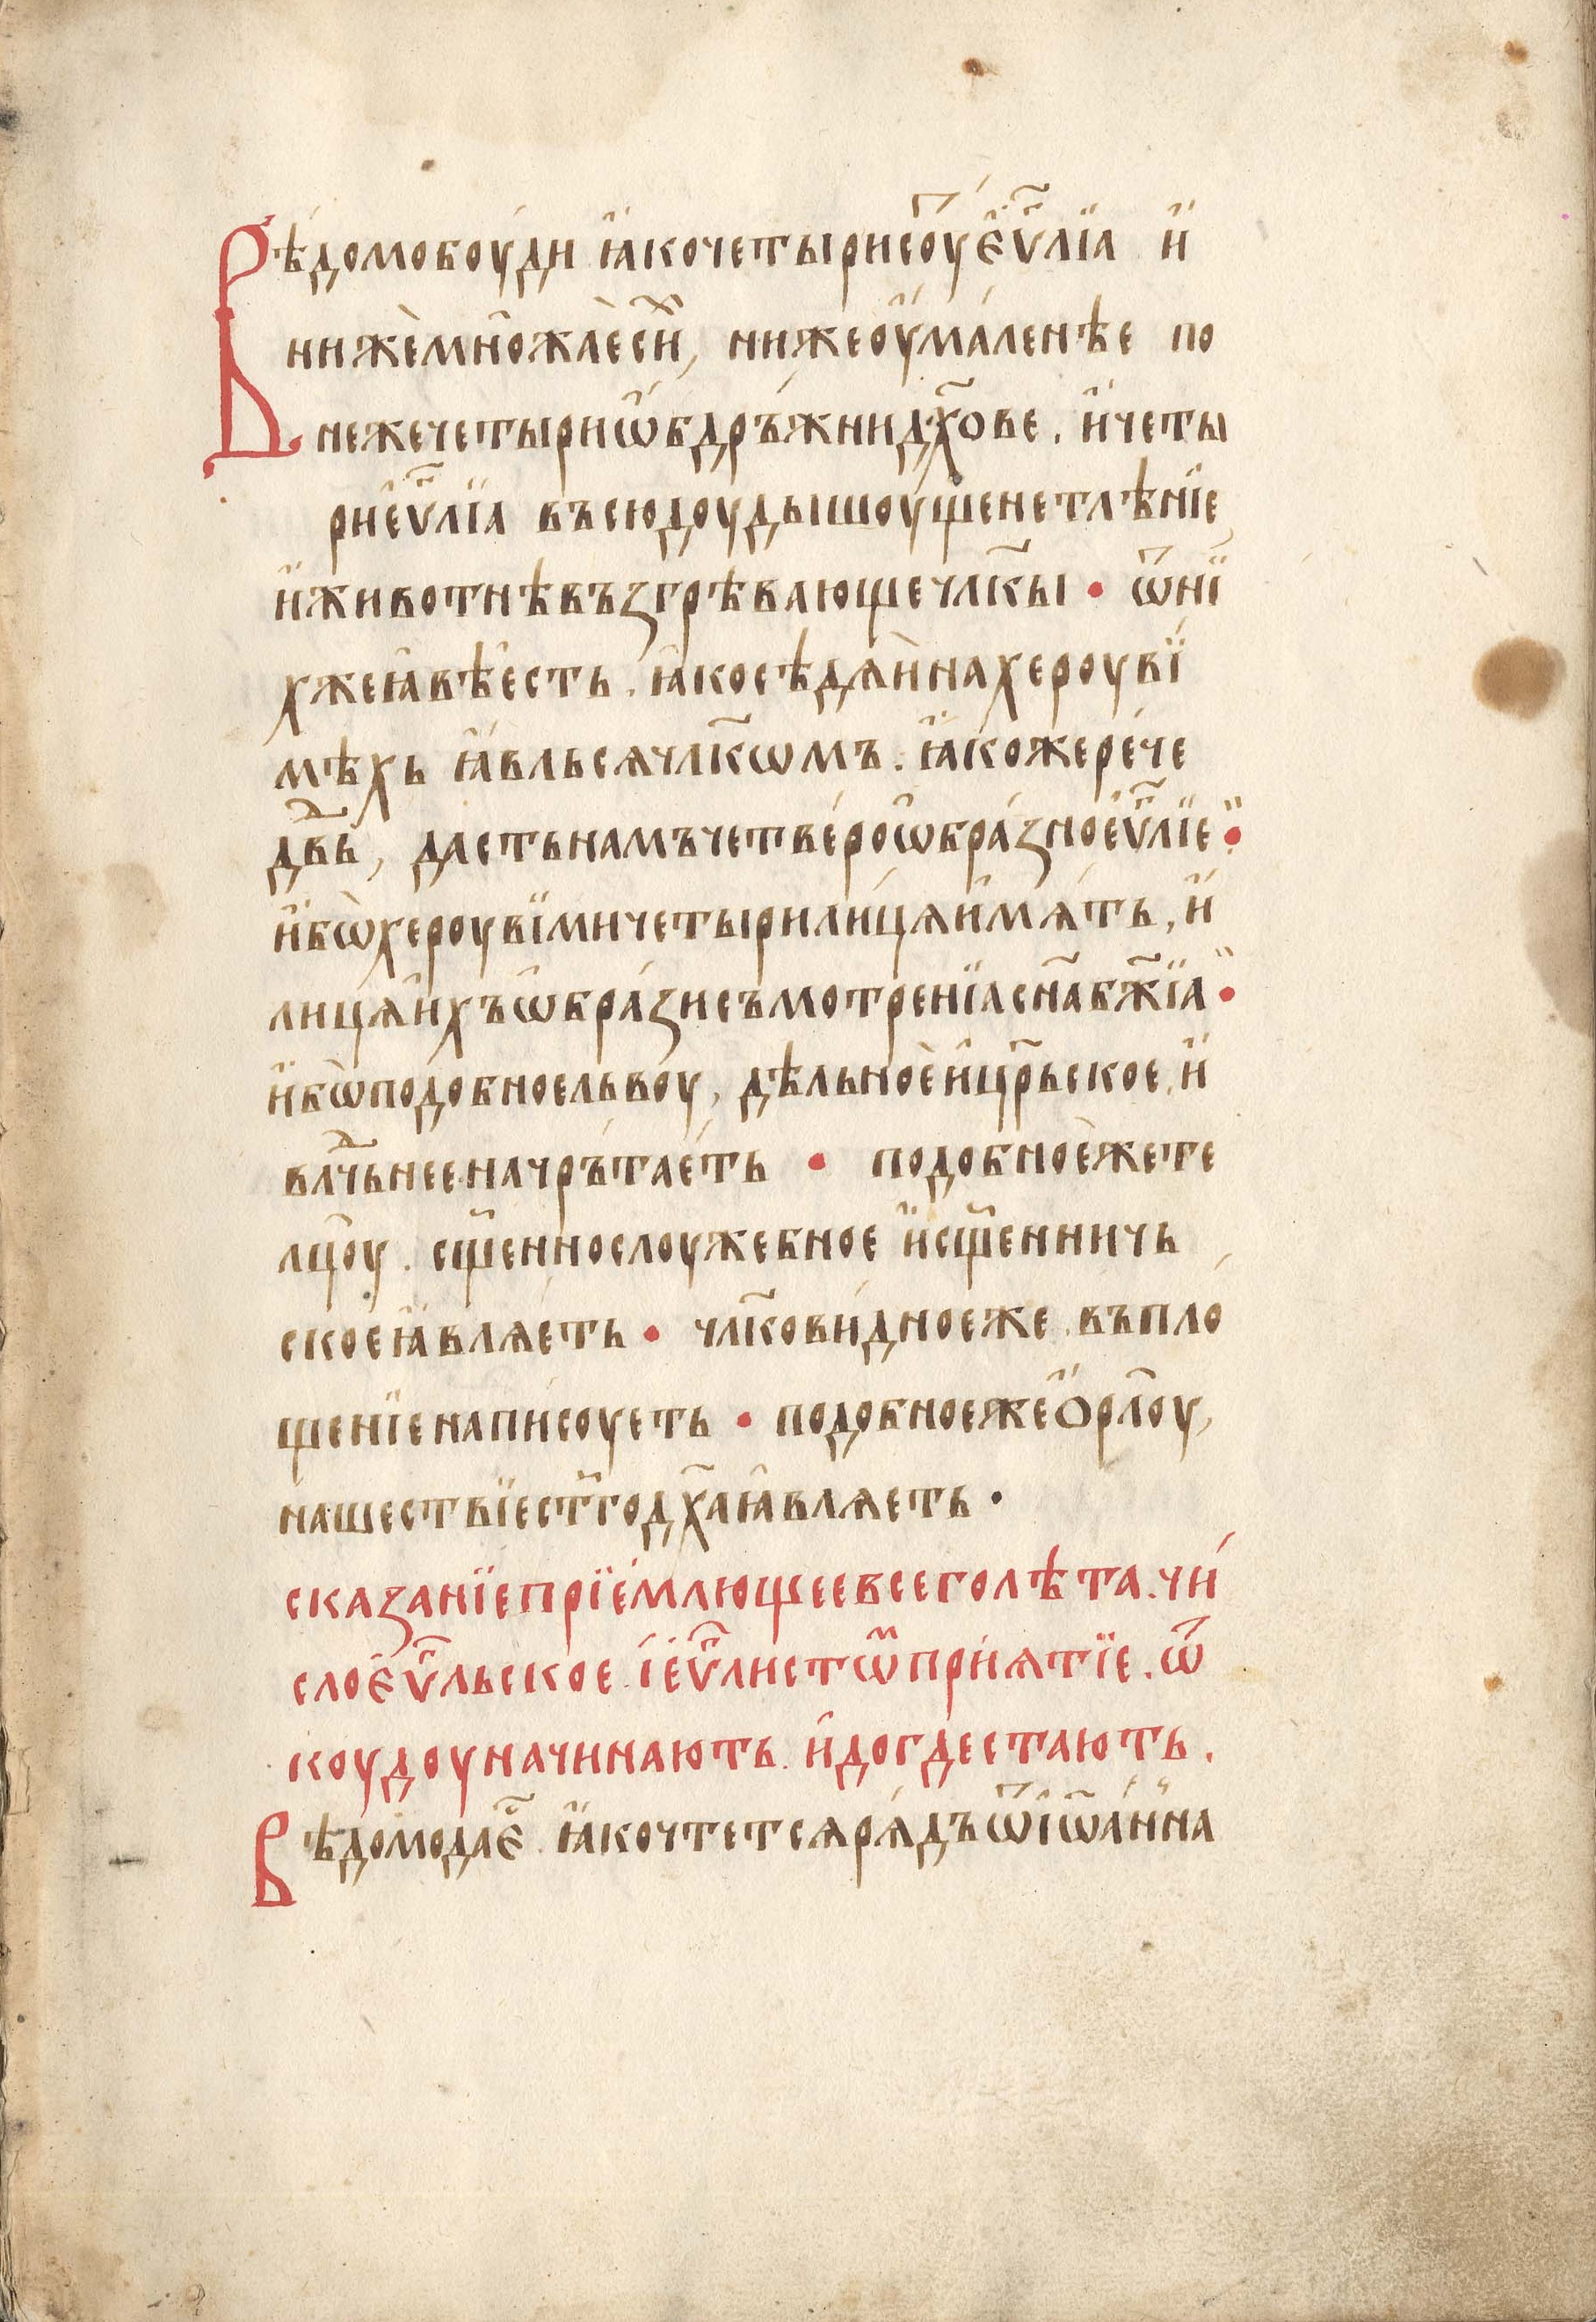 Вѣ́домобоу́ди ꙗ҆́кочеты́рисꙋ́тьє҆ѵⷢ҇лїа и҆
нижѐмно́жлѐси́хъ, нижеѹ҆ма́ленѣе по
нежечеты́риѡ҆бдръ́жнидх҃ове. и҆четы
риє҆ѵⷢ҇лїа въсюдоуды́шоу́щенетлѣ́нїе
и҆животнѣвъзгрѣва́ющечл҃кы • ѿни́
хжеꙗ҆вѣе҆сть. ꙗ҆косѣдѧ́инахероуви́
мѣхь ꙗ҆вльсѧчл҃кѡмъ. ꙗ҆́кожерече
дв҃дь, дастьнамъчетве́роѡ҆бра́зноеѵⷢ҇лїе •
и҆́бѡхероувїмичетырили́цѧи҆́мѧть, и҆
лицѧи҆́хъѡ҆бра́зисъмотренїасн҃абж҃їа •
и҆́бѡподобноельвоу, дѣльноѐи҆цр҃ьское, и҆
влⷣчьнееначръ́тае́ть • подобноѐжете
лцоу. сщ҃еннослоужебное и҆сщ҃енничь
скоеꙗ҆влѧ́еть • чл҃кови́дноеже въпло
щенїенапи́соуеть • подобноежеѻ҆рло́у,
нашествїест҃годх҃аꙗ҆влѧеть •
сказанїепрїе́млющеевсеголѣта. чи́
слоє҆ѵⷢ҇льское. і҆е҆ѵⷢ҇листѡмъпри́ѧтїе. ѿ
коудоуначинають. и҆догдестають.
Вѣ́домодає҆сть ꙗ҆́кочтетсѧрѧ́дъѿі҆ѡа́нна